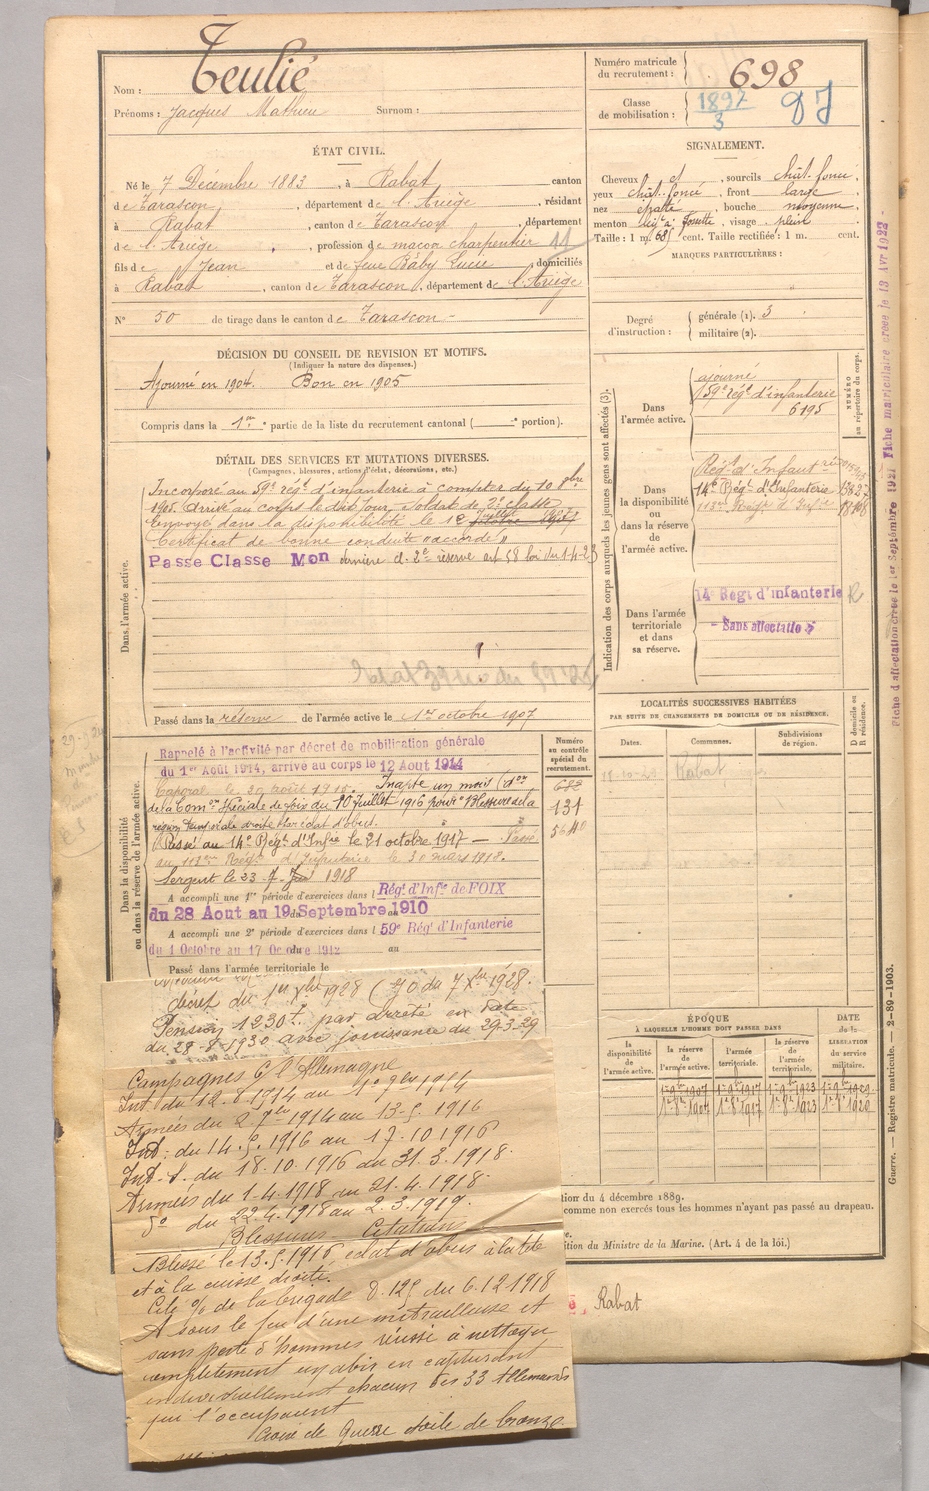 Nom : Teulié
Prénoms : Jacques Mathieu Surnom :
Numéro matricule du recrutement : 698
Classe de mobilisation : 1897 / 3
ÉTAT CIVIL.
Né le 7 Décembre 1883, à Rabat canton
de Tarascon, département de l'Ariège, résidant
à Rabat, canton de Tarascon, département
de l'Ariège, profession de maçon charpentier 44
fils de Jean et de feue Baby Lucie domiciliés
à Rabat, canton de Tarascon, département de l'Ariège
N° 50 de tirage dans le canton de Tarascon
SIGNALEMENT.
Cheveux et, sourcils chât. foncé,
yeux chât. foncé, front large
nez épaté, bouche moyenne,
menton à fossette, visage plein
Taille : 1 m. 68 cent. Taille rectifiée : 1 m. cent.
MARQUES PARTICULIÈRES :
Degré d'instruction : générale (1). 3
militaire (2).
DÉCISION DU CONSEIL DE REVISION ET MOTIFS.
(Indiquer la nature des dispenses.)
Ajourné en 1904. Bon en 1905
Compris dans la 1re partie de la liste du recrutement cantonal ( e portion).
DÉTAIL DES SERVICES ET MUTATIONS DIVERSES.
(Campagnes, blessures, actions d'éclat, décorations, etc.)
Dans l'armée active.
Incorporé au 59e régt d'infanterie à compter du 10 8bre
1905. Arrivé au corps le dit jour, soldat de 2e classe
Envoyé dans la disponibilité le 12 juillet 1907
Certificat de bonne conduite "accordé"
Passe Classe Mon dernière d. 2e réserve art 58 loi du 1-4-23
Passé dans la réserve de l'armée active le 1er octobre 1907
Indication des corps auxquels les jeunes gens sont affectés (3).
NUMÉRO au répertoire du corps.
Dans l'armée active.
ajourné
59e Régt d'infanterie
6195
Dans la disponibilité ou dans la réserve de l'armée active.
Régt d'Infant
14e Régt d'Infanterie
113e Régt d'Infie
Dans l'armée territoriale et dans sa réserve.
14e Regt d'infanterie R
- Sans affectation
Fiche d'affectation créée le 1er Septembre 1921 Fiche matriculaire créée le 13 Avr 1922 -
LOCALITÉS SUCCESSIVES HABITÉES
PAR SUITE DE CHANGEMENTS DE DOMICILE OU DE RÉSIDENCE.
Dates. Communes. Subdivisions de région. D domicile ou R résidence.
Rabat
Dans la disponibilité ou dans la réserve de l'armée active.
Numéro au contrôle spécial du recrutement.
131
Rappelé à l'activité par décret de mobilisation générale
du 1er Août 1914, arrivé au corps le 12 Aout 1914
Caporal le 30 août 1915. Inapte un mois (don
de la Comon Spéciale de Foix du 10 juillet 1916 pour "Blessure de la
région temporale droite par éclat d'obus.
Passé au 14e Régt d'Infie le 21 octobre 1917 — Passé
au 113e Régt d'Infanterie le 30 mars 1918.
Sergent le 23 1918
A accompli une 1re période d'exercices dans l Régt d'Infie de FOIX
du 28 Aout au 19 Septembre 1910
A accompli une 2e période d'exercices dans l 59e Régt d'Infanterie
du 1 Octobre au 17 Octobre 1912
Passé dans l'armée territoriale le
décret du 1er Xbre 1928 (JO du 7 Xbre 1928.
Pension 1230f par arrêté en date
du 28-8-1930 avec jouissance du 29-3-29
Campagnes C l'Allemagne
Int. du 12-8-1914 au 1914
Armées du 2 7bre 1914 au 13-5-1916
Int. du 14-5-1916 au 17-10-1916
Int. du 18-10-1916 au 31-3-1918.
Armées du 1-4-1918 au 21-4-1918.
do du 22-4-1918 au 2-3-1919.
Blessures — Citations
Blessé le 13-5-1916 éclat d'obus à la tête
et à la cuisse droite.
Cité o/ de la brigade n. 125 du 6-12-1918
A sous le feu d'une mitrailleuse et
sans perte d'hommes réussi à nettoyer
complètement un abri en capturant
individuellement chacun des 33 Allemands
qui l'occupaient
Croix de Guerre étoile de bronze
ÉPOQUE
À LAQUELLE L'HOMME DOIT PASSER DANS
DATE de la LIBÉRATION du service militaire.
la disponibilité de l'armée active. la réserve de l'armée active. l'armée territoriale. la réserve de l'armée territoriale.
1er 8bre 1907 1er 8bre 1917 1er 8bre 1923 1er 8bre 1929
tion du 4 décembre 1889.
comme non exercés tous les hommes n'ayant pas passé au drapeau.
ition du Ministre de la Marine. (Art. 4 de la loi.)
Guerre. — Registre matricule. — 2-89-1903.
Rabat